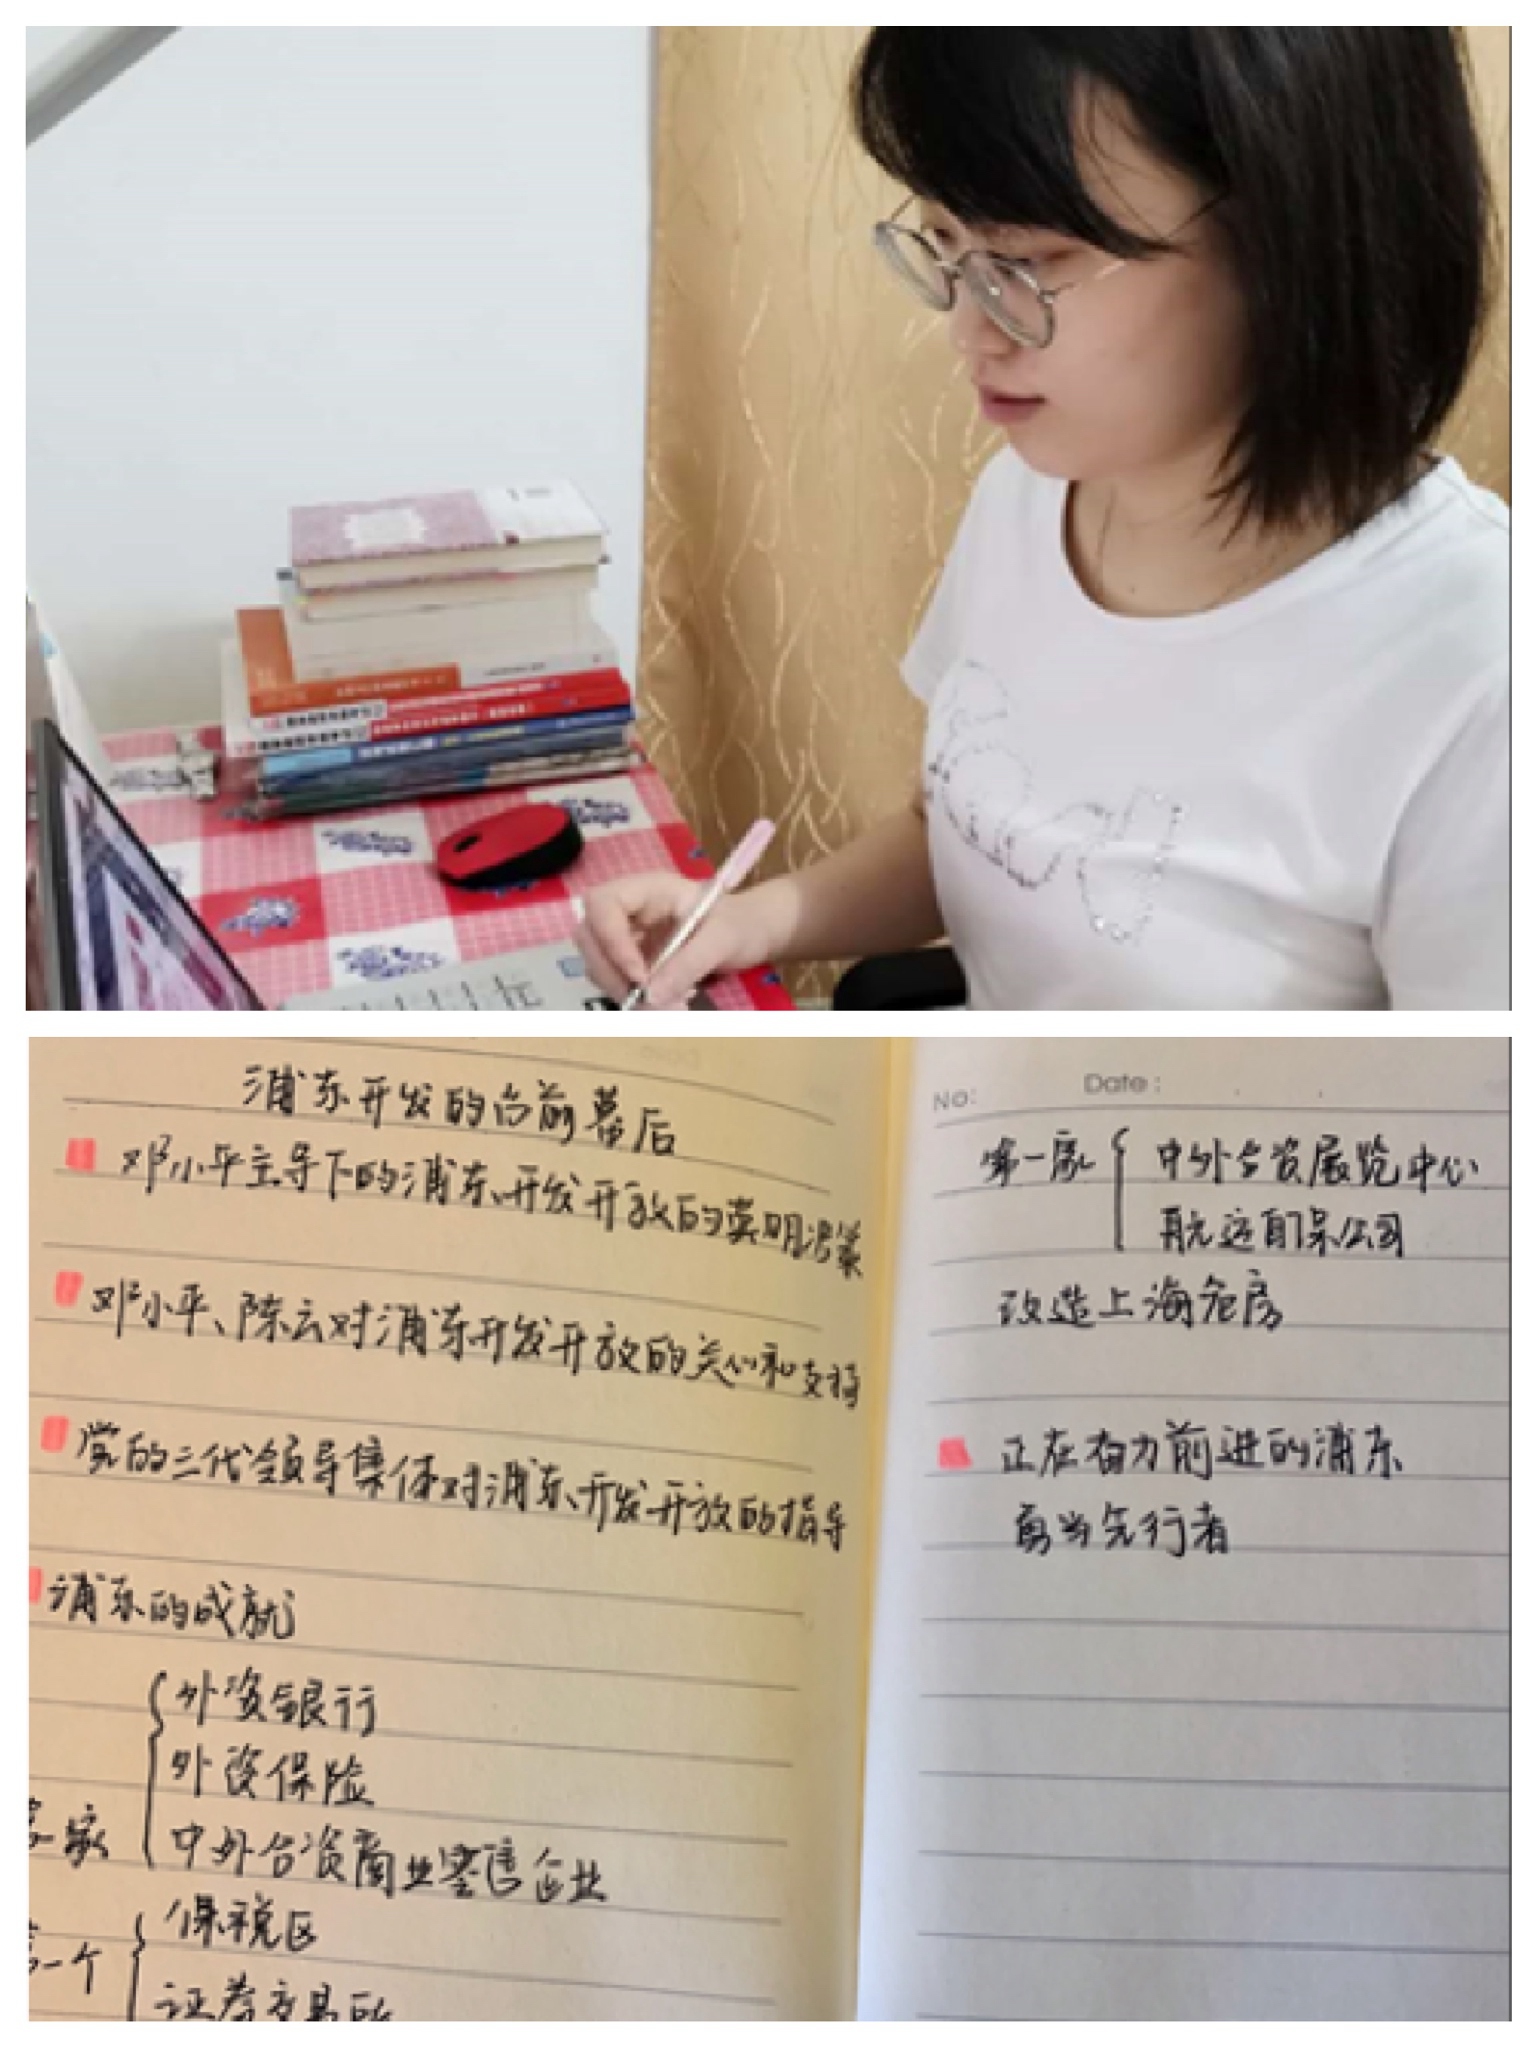 浦东开发的台前幕后
邓小平主导下的浦东开发开放的英明决策
邓小平、陈云对浦东开发开放的关心和支持
党的三代领导集体对浦东开发开放的指导
浦东的成就
外资银行
外资保险
第一家
中外合资商业零售企业
保税区
第一个
证券交易所
No:
Date:
第一家
中外合资展览中心
航运自保公司
改造上海危房
正在奋力前进的浦东
勇当先行者